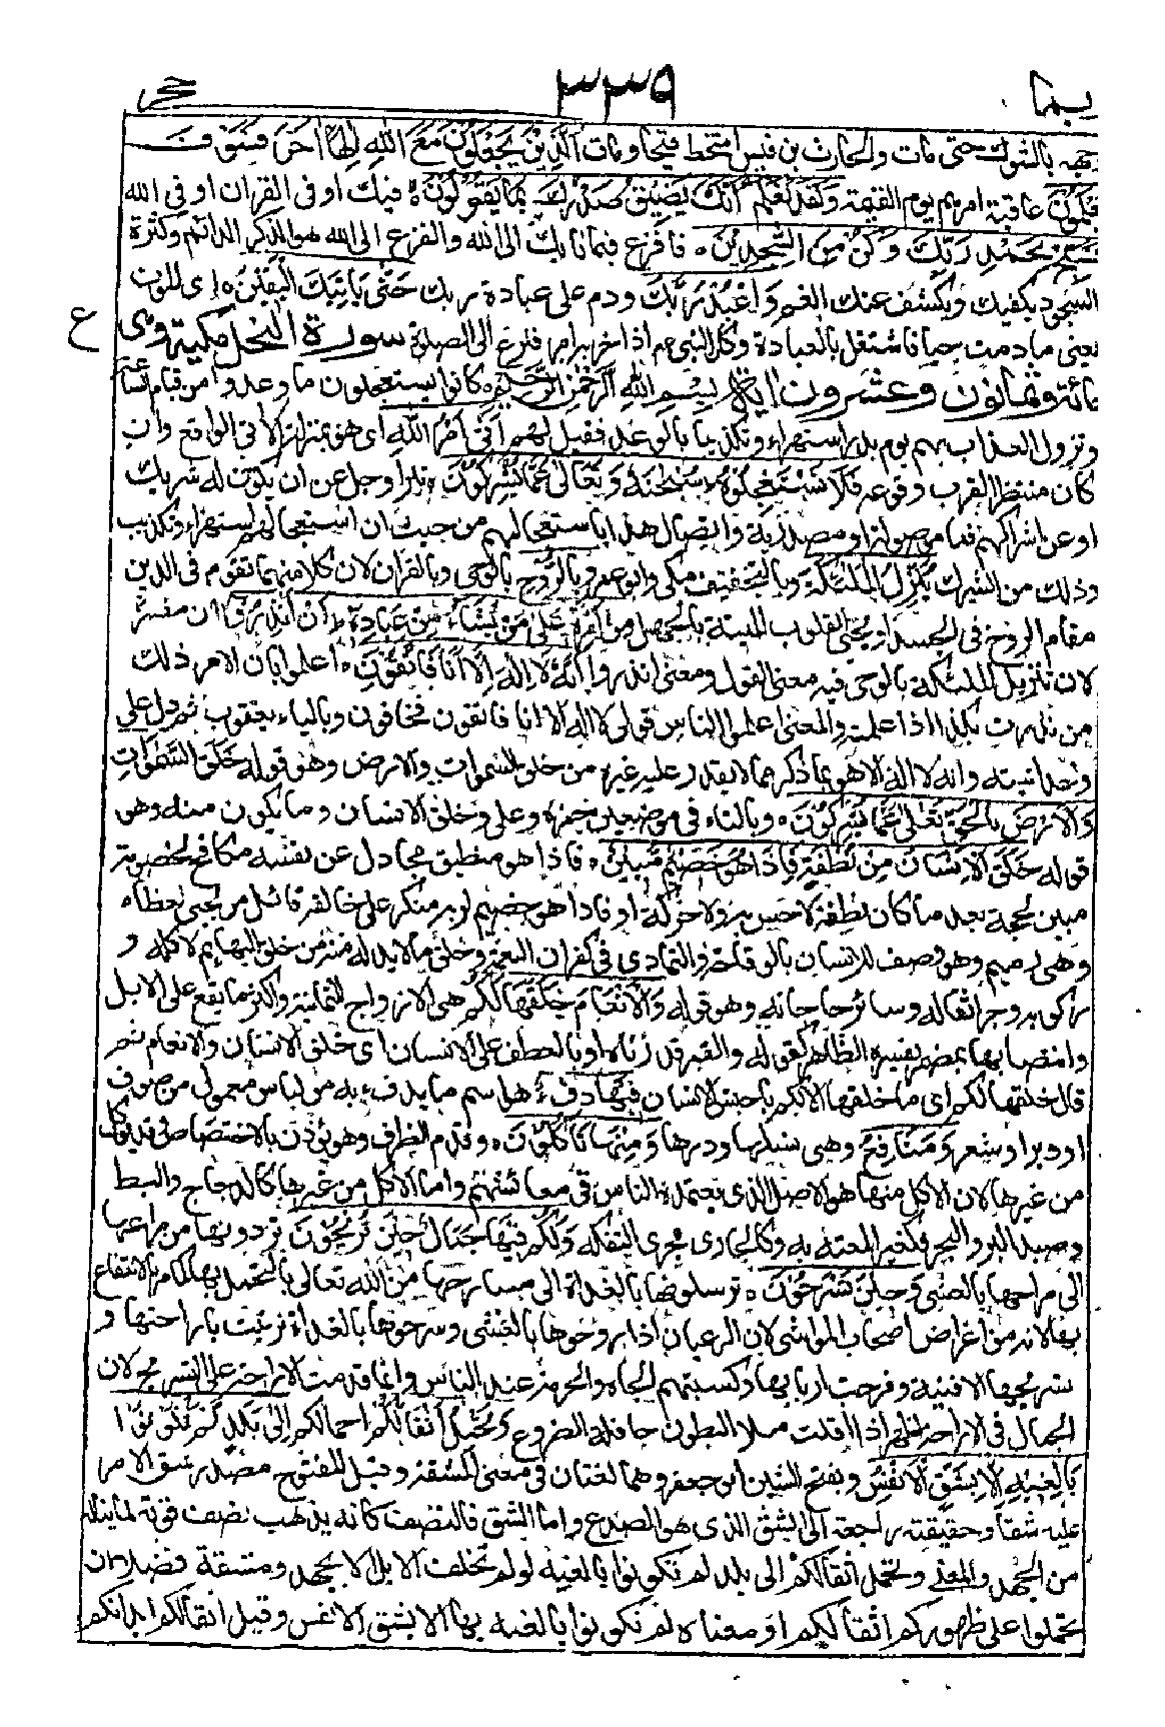 ربما ٣٣٩ حجر
جهه بالشوك حتى مات والحارث بن قيس امتخط قيحا ومات الَّذِيْنَ يَجْعَلُوْنَ مَعَ اللّٰهِ اِلٰهًا اٰخَرَ فَسَوْفَ
يَعْلَمُوْنَ عاقبة امرهم يوم القيمة وَلَقَدْ نَعْلَمُ اَنَّكَ يَضِيْقُ صَدْرُكَ بِمَا يَقُوْلُوْنَ ه فيك او فى القران او فى الله
فَسَبِّحْ بِحَمْدِ رَبِّكَ وَكُنْ مِّنَ السّٰجِدِيْنَ ه فافزع فيما نابك الى الله والفزع الى الله هو الذكر الدائم وكثرة
السجود يكفيك ويكشف عنك الغم وَاعْبُدْ رَبَّكَ ودم على عبادة ربك حَتّٰى يَاْتِيَكَ الْيَقِيْنُ ه اى الموت
يعنى ما دمت حيا فاشتغل بالعبادة وكان النبى عم اذا حزبه امر فزع الى الصلوة سورة النحل مكية وهى
ع
مائة وثمان وعشرون اية بِسْمِ اللّٰهِ الرَّحْمٰنِ الرَّحِيْمِ ه كانوا يستعجلون ما وعدوا من قيام الساعة
ونزول العذاب بهم يوم بدر استهزاء وتكذيبا بالوعد فقيل لهم اَتٰى اَمْرُ اللّٰهِ اى هو بمنزلة الاتى الواقع وان
كان منتظرا لقرب وقوعه فَلَا تَسْتَعْجِلُوْهُ سُبْحٰنَهٗ وَتَعٰلٰى عَمَّا يُشْرِكُوْنَ ه تبرأ وجل عن ان يكون له شريك
او عن اشراكهم فما موصولة او مصدرية واتصال هذا باستعجالهم من حيث ان استعجالهم استهزاء وتكذيب
وذلك من الشرك يُنَزِّلُ الْمَلٰئِكَةَ وبالتخفيف مكى وابو عمرو بِالرُّوْحِ بالوحى وبالقران لان كلا منهما تقوم فى الدين
مقام الروح فى الجسد او يحيى القلوب الميتة بالجهل مِنْ اَمْرِهٖ عَلٰى مَنْ يَّشَاءُ مِنْ عِبَادِهٖ اَنْ اَنْذِرُوْا ان مفسرة
لان تنزيل الملئكة بالوحى فيه معنى القول ومعنى انذروا اَنَّهٗ لَا اِلٰهَ اِلَّا اَنَا فَاتَّقُوْنِ ه اعلموا بان الامر ذلك
من نذرت بكذا اذا علمته والمعنى اعلموا الناس قولى لا اله الا انا فاتقون فخافون وبالياء يعقوب ثم دل على
وحدانيته وانه لا اله الا هو بما ذكر مما لا يقدر عليه غيره من خلق السموات والارض وهو قوله خَلَقَ السَّمٰوٰتِ
وَالْاَرْضَ بِالْحَقِّ تَعٰلٰى عَمَّا يُشْرِكُوْنَ ه وبالتاء فى موضعين حمزة وعلى وخلق الانسان وما يكون منه وهو
قوله خَلَقَ الْاِنْسَانَ مِنْ نُّطْفَةٍ فَاِذَا هُوَ خَصِيْمٌ مُّبِيْنٌ ه فاذا هو منطيق مجادل عن نفسه مكافح لخصومته
مبين لحجة بعد ما كان نطفة لا حس به ولا حركة او فاذا هو خصيم لربه منكر على خالقه قائل من يحيى العظام
وهى رميم وهو وصف للانسان بالوقاحة والتمادى فى كفران النعمة وخلق ما لا بد له منه من خلق البهائم لاكله و
ركوبه وجر اثقاله وسائر حاجاته وهو قوله وَالْاَنْعَامَ خَلَقَهَا لَكُمْ هى الازواج الثمانية واكثر ما يقع على الابل
وانتصابها بمضمر يفسره الظاهر كقوله والقمر قدرناه او بالعطف على الانسان اى خلق الانسان والانعام ثم
قال خلقها لكم اى ما خلقها الا لكم يا جنس الانسان فِيْهَا دِفْءٌ هو اسم ما يدفء به من لباس معمول من صوف
او وبر او شعر وَمَنَافِعُ وهى نسلها ودرها وَمِنْهَا تَاْكُلُوْنَ ه وقدم الظرف وهو يؤذن بالاختصاص وقد يؤكل
من غيرها لان الاكل منها هو الاصل الذى يعتمده الناس فى معائشهم واما الاكل من غيرها كالدجاج والبط
وصيد البر والبحر فكغير المعتد به وكالجارى مجرى التفكه وَلَكُمْ فِيْهَا جَمَالٌ حِيْنَ تُرِيْحُوْنَ تردونها من مراعيها
الى مراحها بالعشى وَحِيْنَ تَسْرَحُوْنَ ه ترسلونها بالغداة الى مسارحها منّ الله تعالى بالتجمل بها كما من بالانتفاع
بها لانه من اغراض اصحاب المواشى لان الرعيان اذا روحوها بالعشى وسرحوها بالغداة تزينت باراحتها و
تسريحها الافنية وفرحت اربابها وكسبتهم الجاه والحرمة عند الناس وانما قدمت الاراحة على التسريح لان
الجمال فى الاراحة اظهر اذا اقبلت ملا البطون حافلة الضروع وَتَحْمِلُ اَثْقَالَكُمْ احمالكم اِلٰى بَلَدٍ لَّمْ تَكُوْنُوْا
بٰلِغِيْهِ اِلَّا بِشِقِّ الْاَنْفُسِ وبفتح الشين ابو جعفر وهما لغتان فى معنى المشقة وقيل المفتوح مصدر شق الامر
عليه شقا وحقيقته راجعة الى الشق الذى هو الصدع واما الشق فالنصف كانه يذهب نصف قوته لما يناله
من الجهد والمعنى وتحمل اثقالكم الى بلد لم تكونوا بالغيه لو لم تخلف الابل الا بجهد ومشقة فضلا ان
تحملوا على ظهوركم اثقالكم او معناه لم تكونوا بالغيه بها الا بشق الانفس وقيل اثقالكم ابدانكم